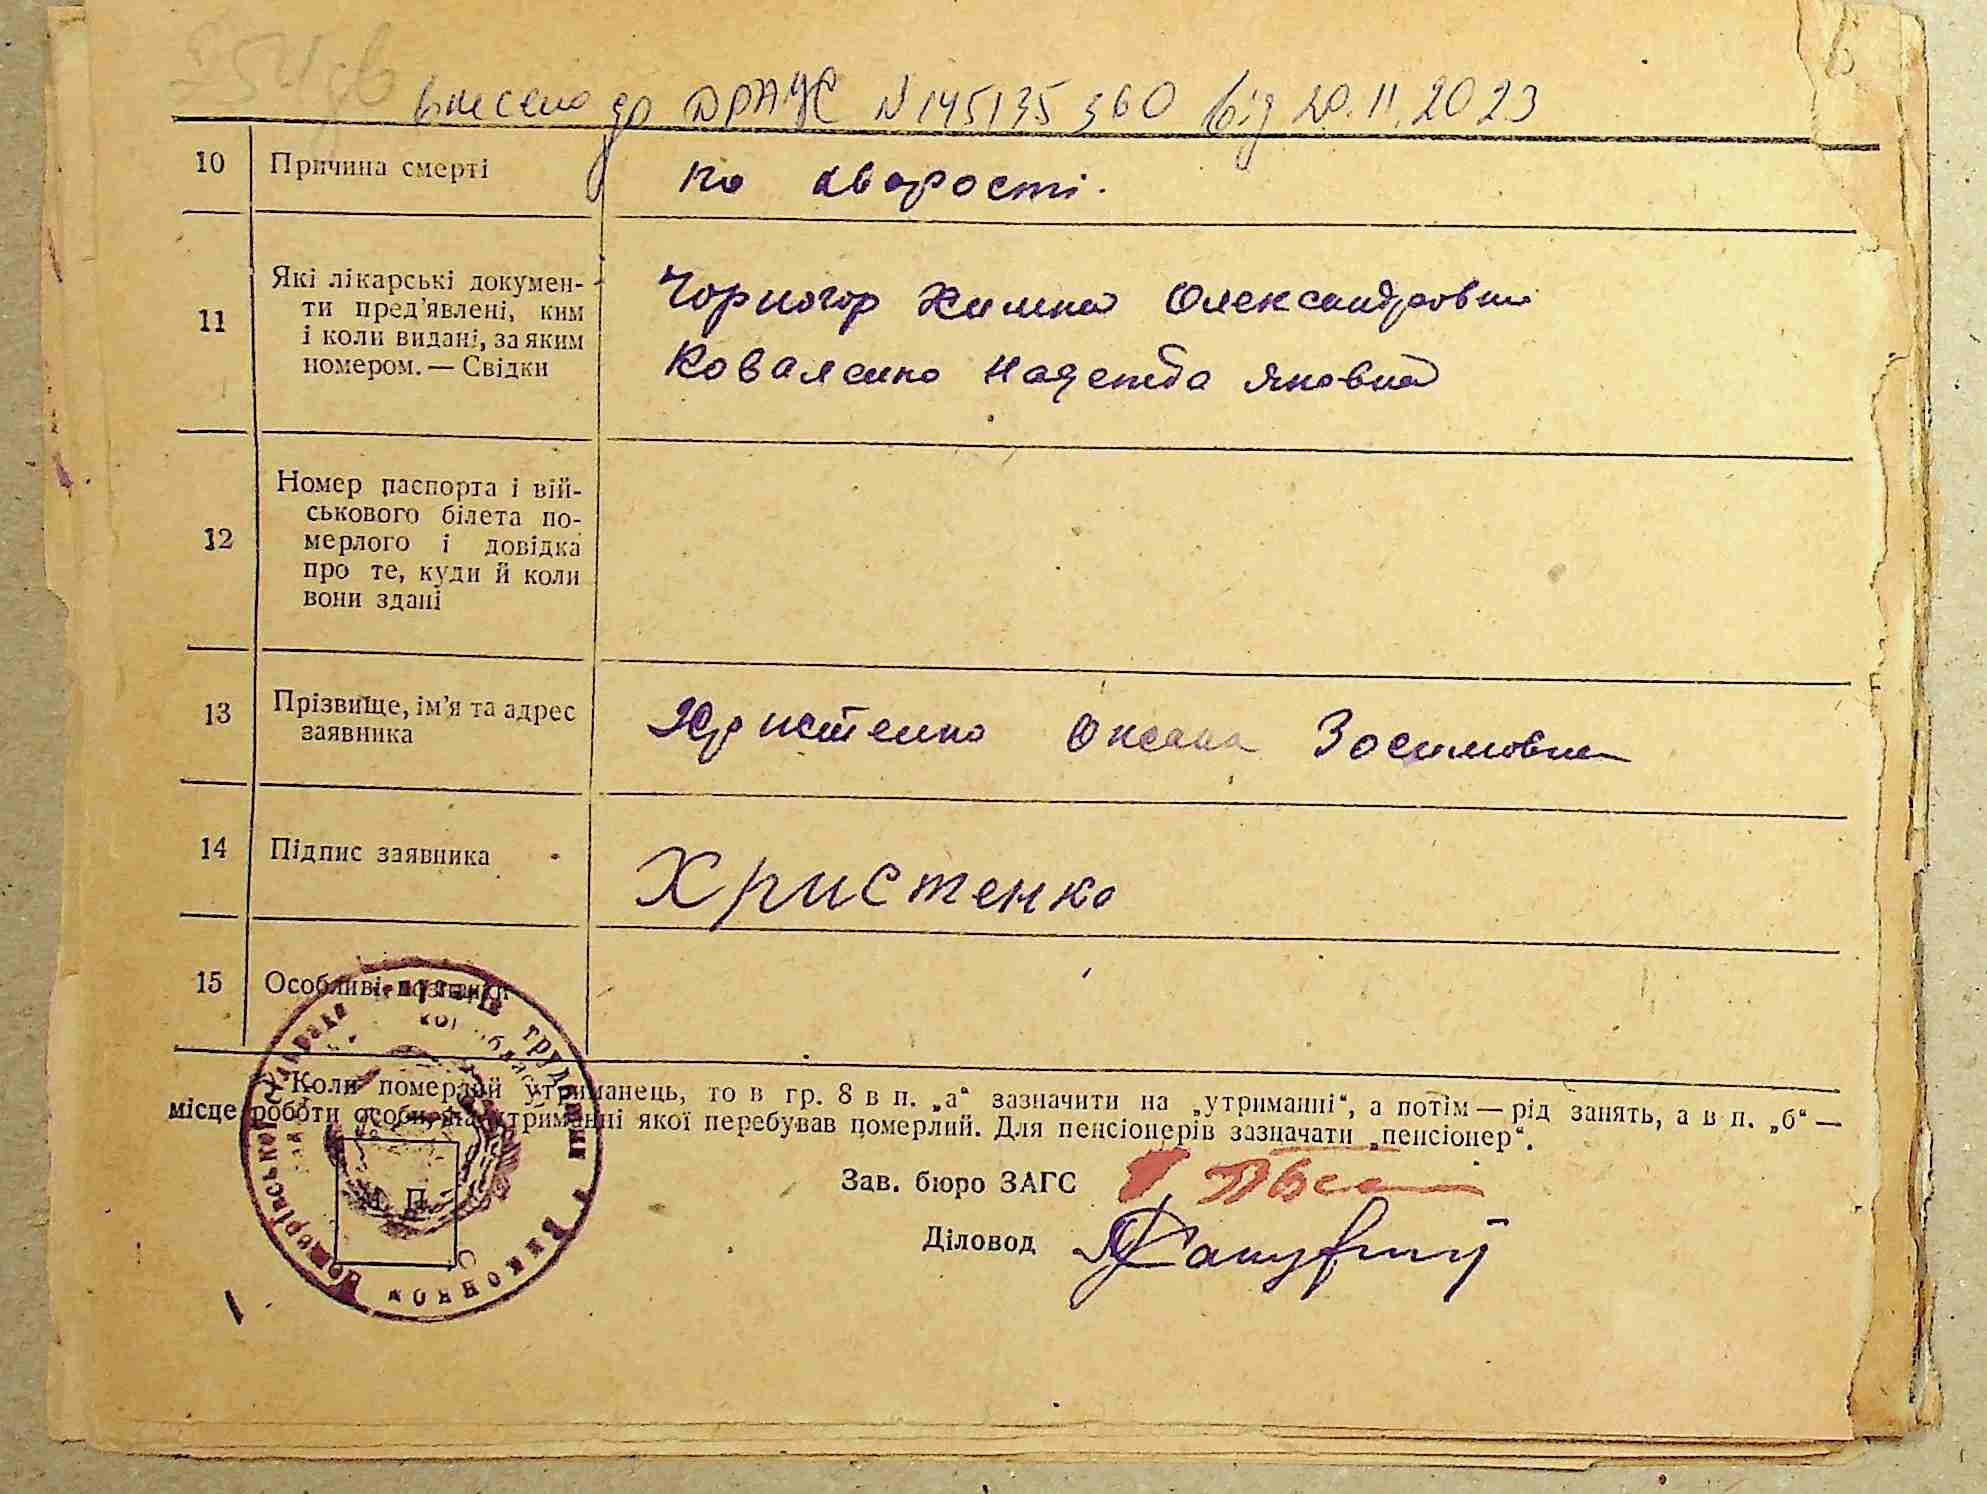 внесено до ДРАЦС N 145135360 від 20.11.2023
10 Причина смерті
по хворості.
11 Які лікарські докумен-
ти пред'явлені, ким
і коли видані, за яким
номером. — Свідки
Чорногор Химка Олександровна
Коваленко Надежда Яковна
12 Номер паспорта і вій-
ськового білета по-
мерлого і довідка
про те, куди й коли
вони здані
13 Прізвище, ім'я та адрес
заявника
Христенко Оксана Зосимовна
14 Підпис заявника
Христенко
15 Особливі позначки
Коли померлий утриманець, то в гр. 8 в п. „а“ зазначити на „утриманні“, а потім — рід занять, а в п. „б“ —
місце роботи особи, на утриманні якої перебував померлий. Для пенсіонерів зазначати „пенсіонер“.
Зав. бюро ЗАГС
Діловод
М П
трудящих Виконком